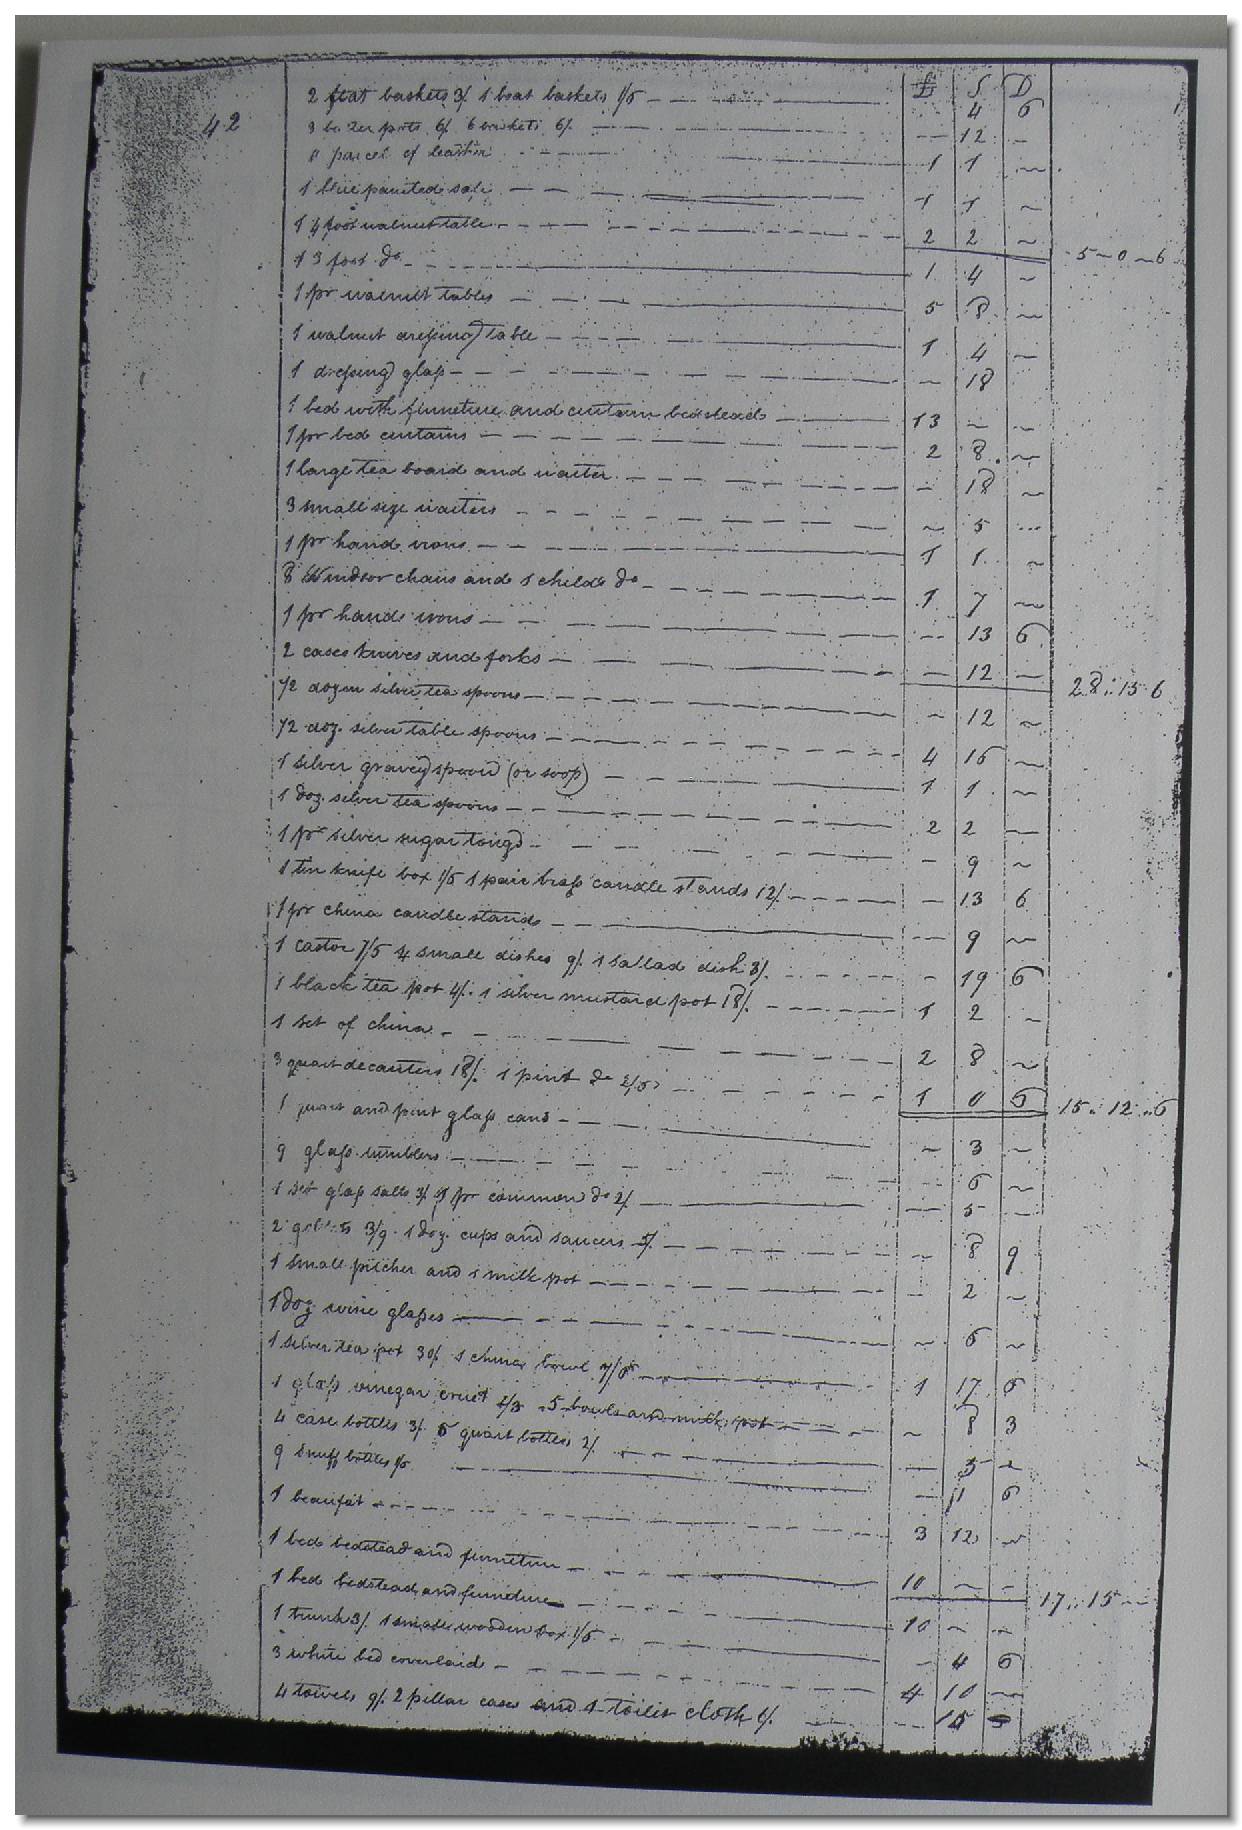 42
£ S D
2 flat baskets 3/ 1 boat baskets 1/6 — 4 6
3 butter pots 6/ 6 baskets 6/ — 12 ~
a parcel of leather 1 1 ~
1 blue painted safe — 1 1 ~
1 4 foot walnut table — 2 2 ~ 5 ~ 0 ~ 6
1 3 foot do — 1 4 ~
1 pr walnut tables — 5 8 ~
1 walnut dressing table — 1 4 ~
1 dressing glass — 18
1 bed with furneture and curtain bedstead — 13 ~ ~
1 pr bed curtains — 2 8 ~
1 large tea board and waiter — 18 ~
3 small size waiters — 5 ...
1 pr hand irons — 1 1 ~
8 Windsor chairs and 1 childs do — 1 7 ~
1 pr hand irons — 13 6
2 cases knives and forks — 12 ~ 28 .. 15 6
1/2 dozen silver tea spoons — 12 ~
1/2 doz. silver table spoons — 4 16 ~
1 silver gravey spoon (or soop) — 1 1 ~
1 doz. silver tea spoons — 2 2 ~
1 pr silver sugar tongs — 9 ~
1 tin knife box 1/6 1 pair brass candle stands 12/ — 13 6
1 pr china candle stands — 9 ~
1 castor 7/6 4 small dishes 9/. 1 sallad dish 3/. — 19 6
1 black tea pot 4/. 1 silver mustard pot 18/. — 1 2 ~
1 set of china — 2 8 ~
3 quart decanters 18/. 1 pint do 2/6 — 1 0 6 15 .. 12 .. 6
1 quart and pint glass cans — 3 ~
9 glass tumblers — 6 ~
1 set glass salts 3/ 1 pr common do 2/ — 5 —
2 goblets 3/9 1 doz. cups and saucers 5/. — 8 9
1 small pitcher and 1 milk pot — 2 ~
1 doz wine glasses — 6 ~
1 silver tea pot 30/. 1 china bowl 7/6 — 1 17 6
1 glass vinegar cruet 1/3 5 bowls and milk pot — 8 3
4 case bottles 3/. 6 quart bottles 2/. — 5 ~
9 snuff bottles — 11 6
1 beaufat — 3 12 ~
1 bed bedstead and furneture — 10 ~ ~ 17 .. 15 —
1 bed bedstead and furneture — 10 ~ ~
1 trunk 3/. 1 small wooden box 1/6 — 4 6
3 white bed coverlaid — 4 10 ~
4 towels 9/. 2 pillar cases and 1 toilet cloth 6/. — 15